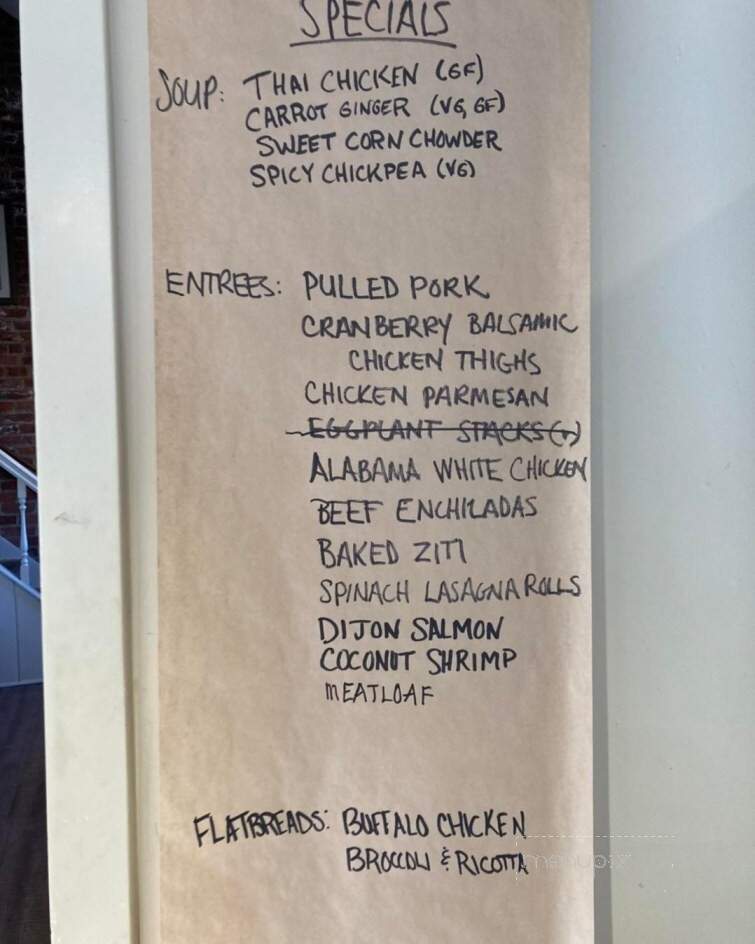 SPECIALS
SOUP: THAI CHICKEN (GF)
CARROT GINGER (VG, GF)
SWEET CORN CHOWDER
SPICY CHICKPEA (VG)
ENTREES: PULLED PORK
CRANBERRY BALSAMIC
CHICKEN THIGHS
CHICKEN PARMESAN
EGGPLANT STACKS (V)
ALABAMA WHITE CHICKEN
BEEF ENCHILADAS
BAKED ZITI
SPINACH LASAGNA ROLLS
DIJON SALMON
COCONUT SHRIMP
MEATLOAF
FLATBREADS: BUFFALO CHICKEN
BROCCOLI & RICOTTA